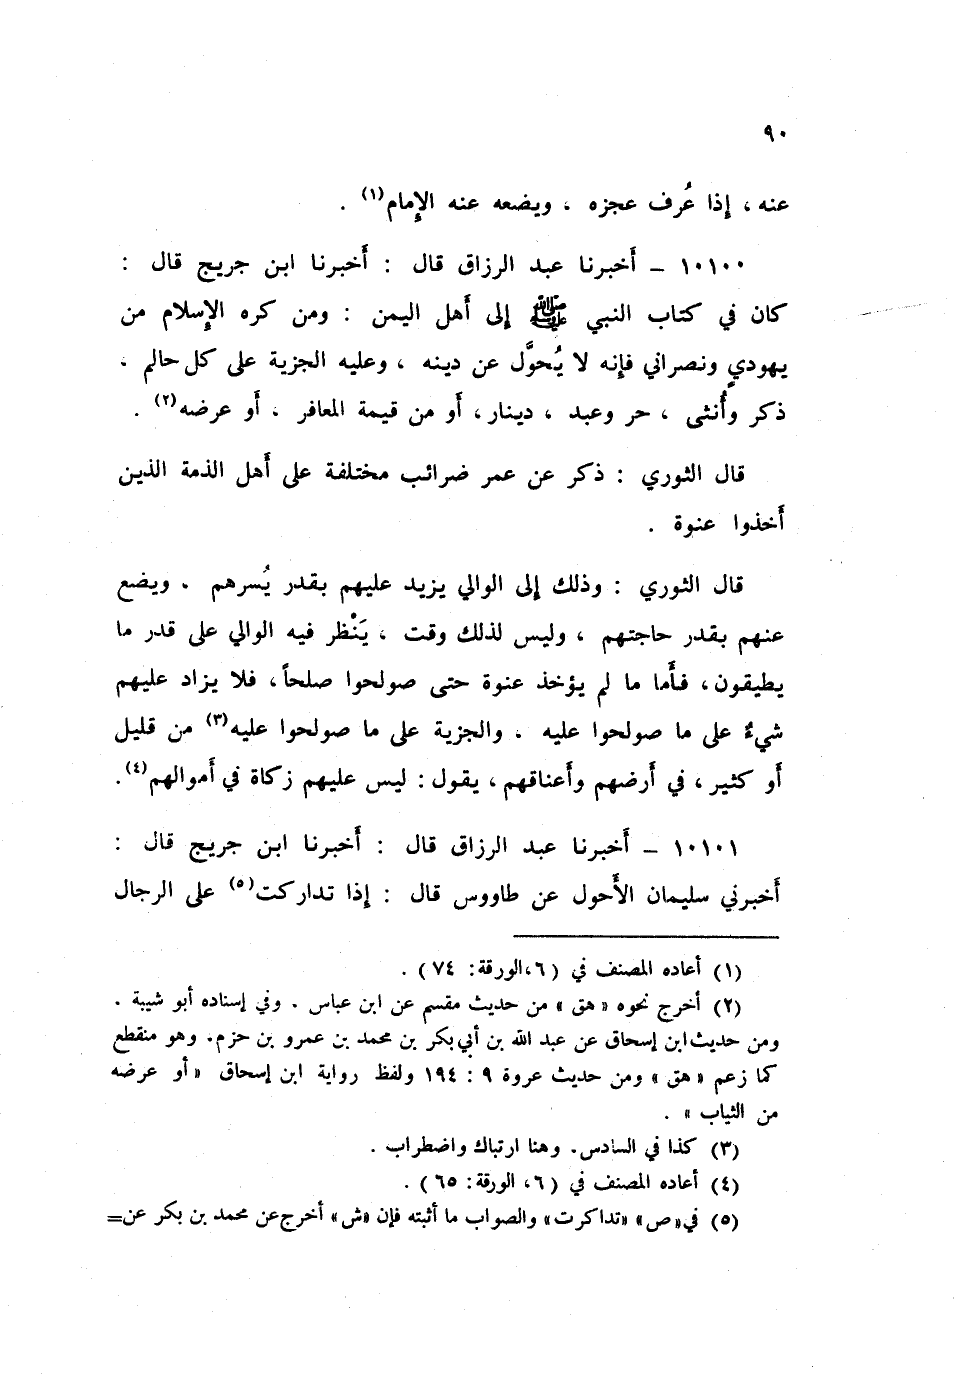 ٩٠
عنه ، إذا عُرف عجزه ، ويضعه عنه الإمام(١) .
١٠١٠٠ – أخبرنا عبد الرزاق قال : أخبرنا ابن جريج قال :
كان في كتاب النبي ﷺ إلى أهل اليمن : ومن كره الإسلام من
يهوديٍ ونصراني فإنه لا يُحوَّل عن دينه ، وعليه الجزية على كل حالم ،
ذكر وأُنثى ، حر وعبد ، دينار ، أو من قيمة المعافر ، أو عرضه(٢) .
قال الثوري : ذكر عن عمر ضرائب مختلفة على أهل الذمة الذين
أخذوا عنوة .
قال الثوري : وذلك إلى الوالي يزيد عليهم بقدر يُسرهم ، ويضع
عنهم بقدر حاجتهم ، وليس لذلك وقت ، يَنْظر فيه الوالي على قدر ما
يطيقون ، فأما ما لم يؤخذ عنوة حتى صولحوا صلحاً ، فلا يزاد عليهم
شيءٌ على ما صولحوا عليه ، والجزية على ما صولحوا عليه(٣) من قليل
أو كثير ، في أرضهم وأعناقهم ، يقول : ليس عليهم زكاة في أموالهم(٤) .
١٠١٠١ – أخبرنا عبد الرزاق قال : أخبرنا ابن جريج قال :
أخبرني سليمان الأحول عن طاووس قال : إذا تداركت(٥) على الرجال
(١) أعاده المصنف في (٦، الورقة: ٧٤) .
(٢) أخرج نحوه «هق» من حديث مقسم عن ابن عباس . وفي إسناده أبو شيبة .
ومن حديث ابن إسحاق عن عبد الله بن أبي بكر بن محمد بن عمرو بن حزم، وهو منقطع
كما زعم «هق» ومن حديث عروة ٩ : ١٩٤ ولفظ رواية ابن إسحاق «أو عرضه
من الثياب» .
(٣) كذا في السادس. وهنا ارتباك واضطراب .
(٤) أعاده المصنف في (٦، الورقة: ٦٥) .
(٥) في «ص» «تداكرت» والصواب ما أثبته فإن «ش» أخرج عن محمد بن بكر عن=